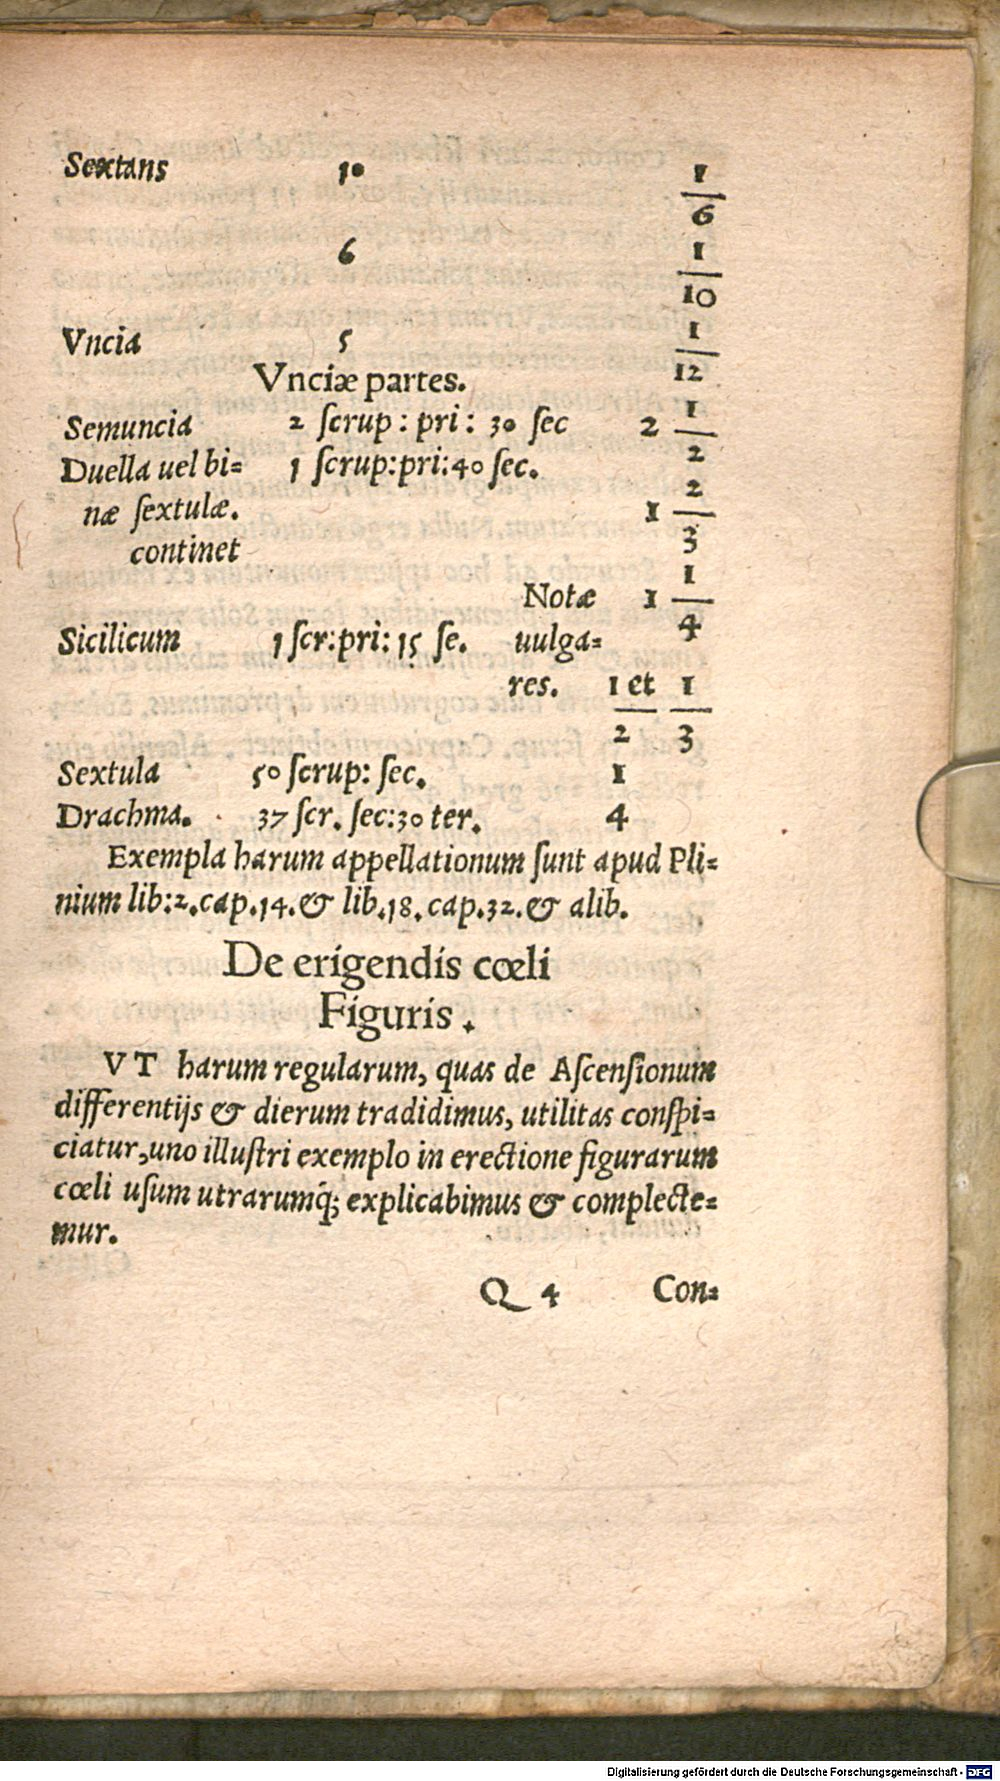 Sextans 10 1
6
6 1
10
Vncia 5 1
Vnciæ partes. 12
Semuncia 2 ſcrup: pri: 30 ſec 2 1
2
Duella uel bi- 1 ſcrup:pri:40 ſec.
næ ſextulæ. 1 2
3
continet
Notæ 1 1
4
Sicilicum 1 ſcr:pri: 15 ſe. uulga-
res. 1 et 1
2 3
Sextula 50 ſcrup: ſec. 1
Drachma. 37 ſcr. ſec:30 ter. 4
Exempla harum appellationum ſunt apud Pli-
nium lib:2.cap.14.& lib.18.cap.32.& alib.
De erigendis cœli
Figuris.
VT harum regularum, quas de Aſcenſionum
differentijs & dierum tradidimus, utilitas conſpi-
ciatur, uno illuſtri exemplo in erectione figurarum
cœli uſum utrarumq́; explicabimus & complecte-
mur.
Q 4 Con-
Digitalisierung gefördert durch die Deutsche Forschungsgemeinschaft - DFG